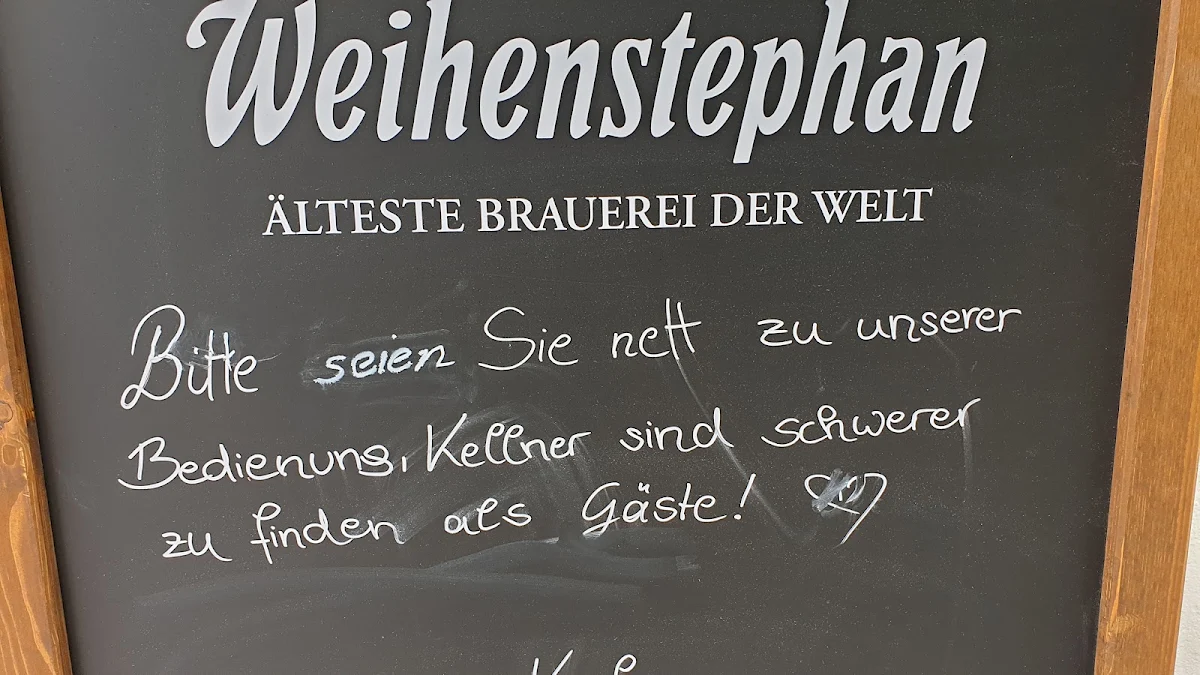 Weihenstephan
ÄLTESTE BRAUEREI DER WELT
Bitte seien Sie nett zu unserer
Bedienung, Kellner sind schwerer
zu finden als Gäste!